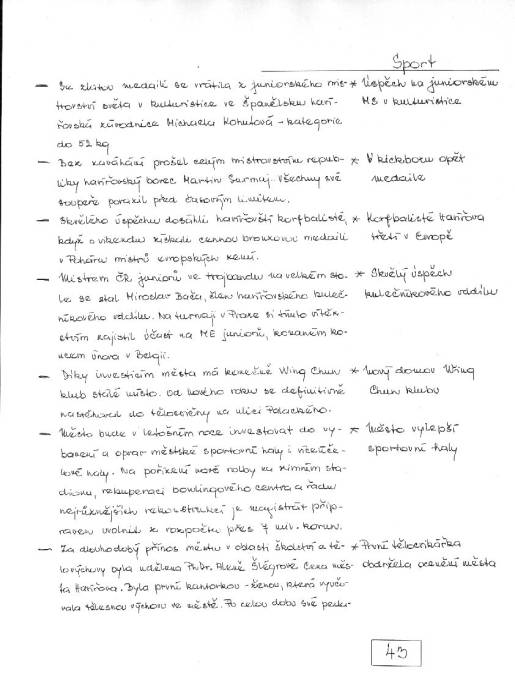 Sport
— Se zlatou medailí se vrátila z juniorského mis- * Úspěch na juniorském
trovství světa v kulturistice ve Španělsku haví- MS v kulturistice
řovská závodnice Michaela Kohutová - kategorie
do 52 kg
— Bez zaváhání prošel celým mistrovstvím repub- * V kickboxu opět
liky havířovský borec Martin Surmaj. Všechny své medaile
soupeře porazil před časovým limitem.
— Skvělého úspěchu dosáhli havířovští korfbalisté, * Korfbalisté Havířova
když o víkendu získali cennou bronzovou medaili třetí v Evropě
v Poháru mistrů evropských zemí.
— Mistrem ČR juniorů ve trojbandu na velkém sto- * Skvělý úspěch
le se stal Miroslav Bača, člen havířovského kuleč- kulečníkového oddílu
níkového oddílu. Na turnaji v Praze si tímto vítěz-
stvím zajistil účast na ME juniorů, konaném ko-
ncem února v Belgii.
— Díky investicím města má konečně Wing Chun * Nový domov Wing
klub stálé místo. Od nového roku se definitivně Chun klubu
nastěhoval do tělocvičny na ulici Palackého.
— Město bude v letošním roce investovat do vy- * Město vylepší
bavení a oprav městské sportovní haly i víceúče- sportovní haly
lové haly. Na pořízení nové rolby na zimním sta-
dionu, rekuperaci bowlingového centra a řadu
nejrůznějších rekonstrukcí je magistrát přip-
raven uvolnit z rozpočtu přes 7 mil. korun.
— Za dlouhodobý přínos městu v oblasti školství a tě- * První tělocvikářka
lovýchovy byla udělena PhDr. Aleně Šlégrové Cena měs- obdržela ocenění města
ta Havířova. Byla první kantorkou - ženou, která vyuču-
vala tělesnou výchovu ve městě. Po celou dobu své peda-
43